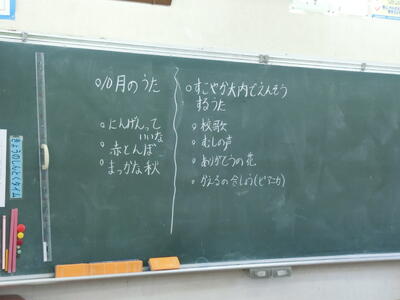 ○10月のうた
○にんげんって
いいな
○赤とんぼ
○まっかな秋
○すこやか大内でえんそう
するうた
○校歌
○むしの声
○ありがとうの花
○かえるの合しょう(ピアニカ)